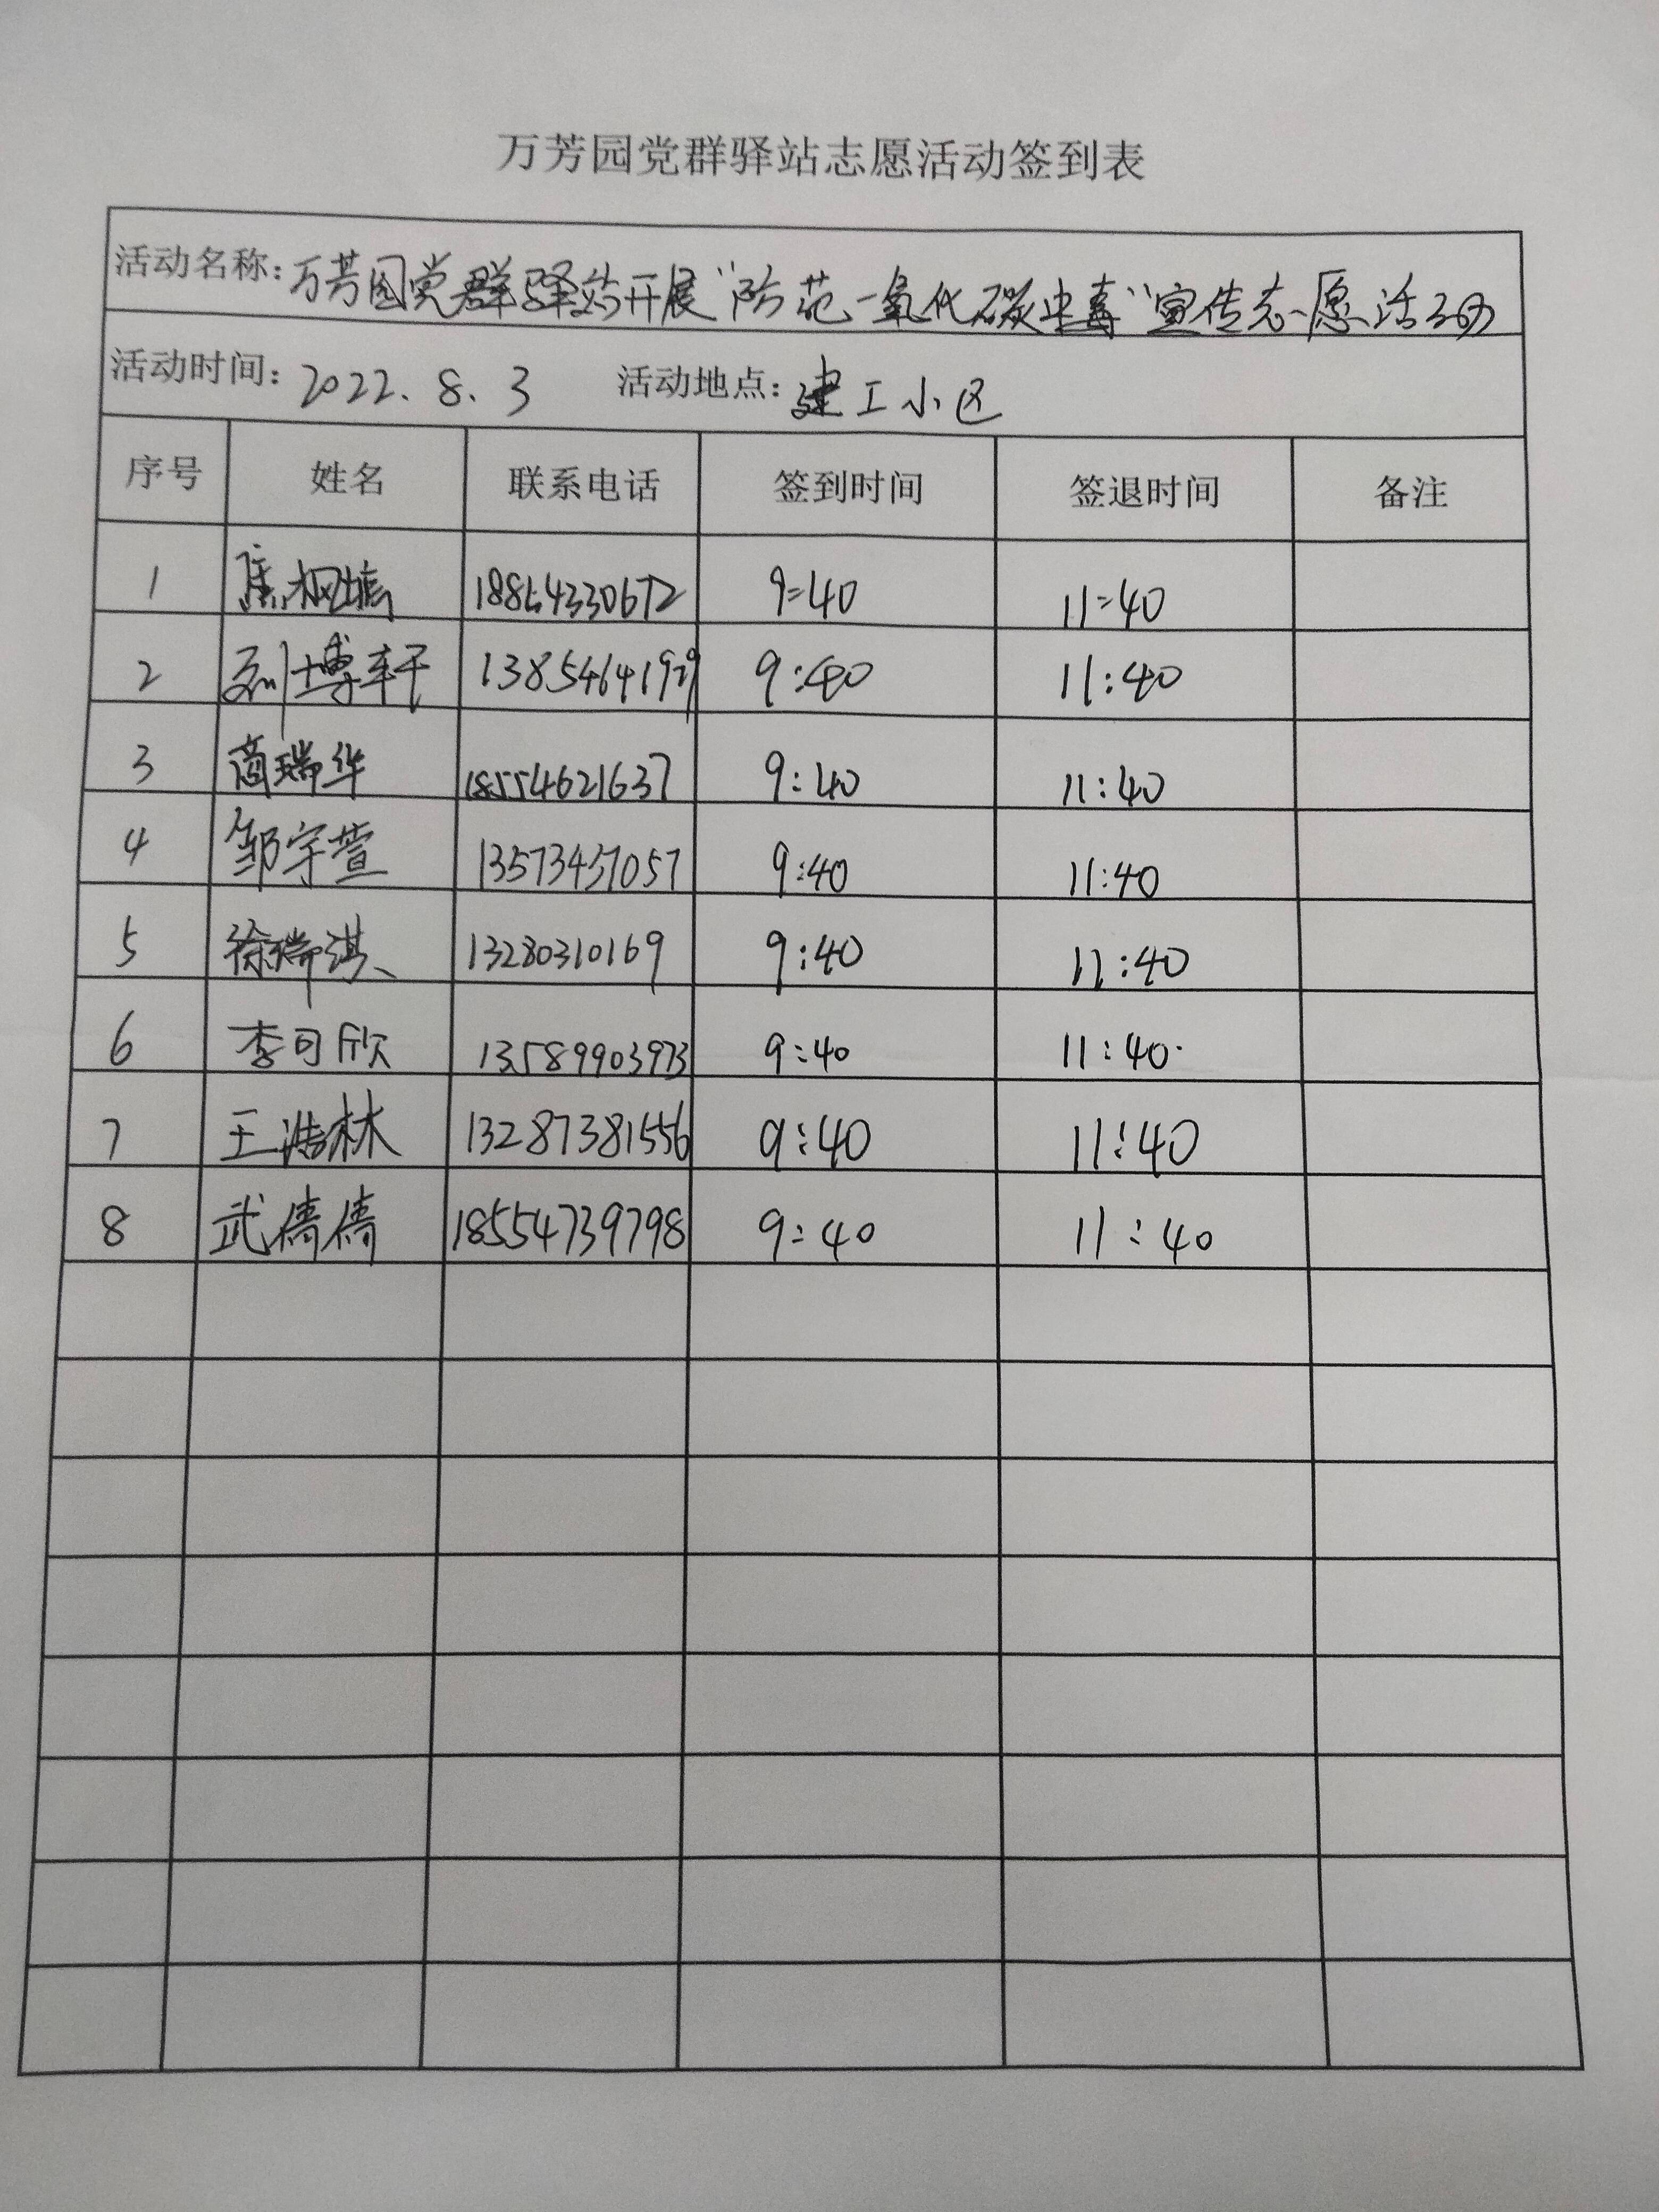 万芳园党群驿站志愿活动签到表
活动名称:万芳园党群驿站开展"防范一氧化碳中毒"宣传志愿活动
活动时间:2022.8.3 活动地点:建工小区
序号 姓名 联系电话 签到时间 签退时间 备注
1 焦 9:40 11:40
2 刘博轩 9:40 11:40
3 商瑞华 18554621637 9:40 11:40
4 邹宇萱 13573457057 9:40 11:40
5 徐瑞淇 13280310169 9:40 11:40
6 李可欣 13589903973 9:40 11:40
7 王浩林 13287381556 9:40 11:40
8 武倩倩 18554739798 9:40 11:40